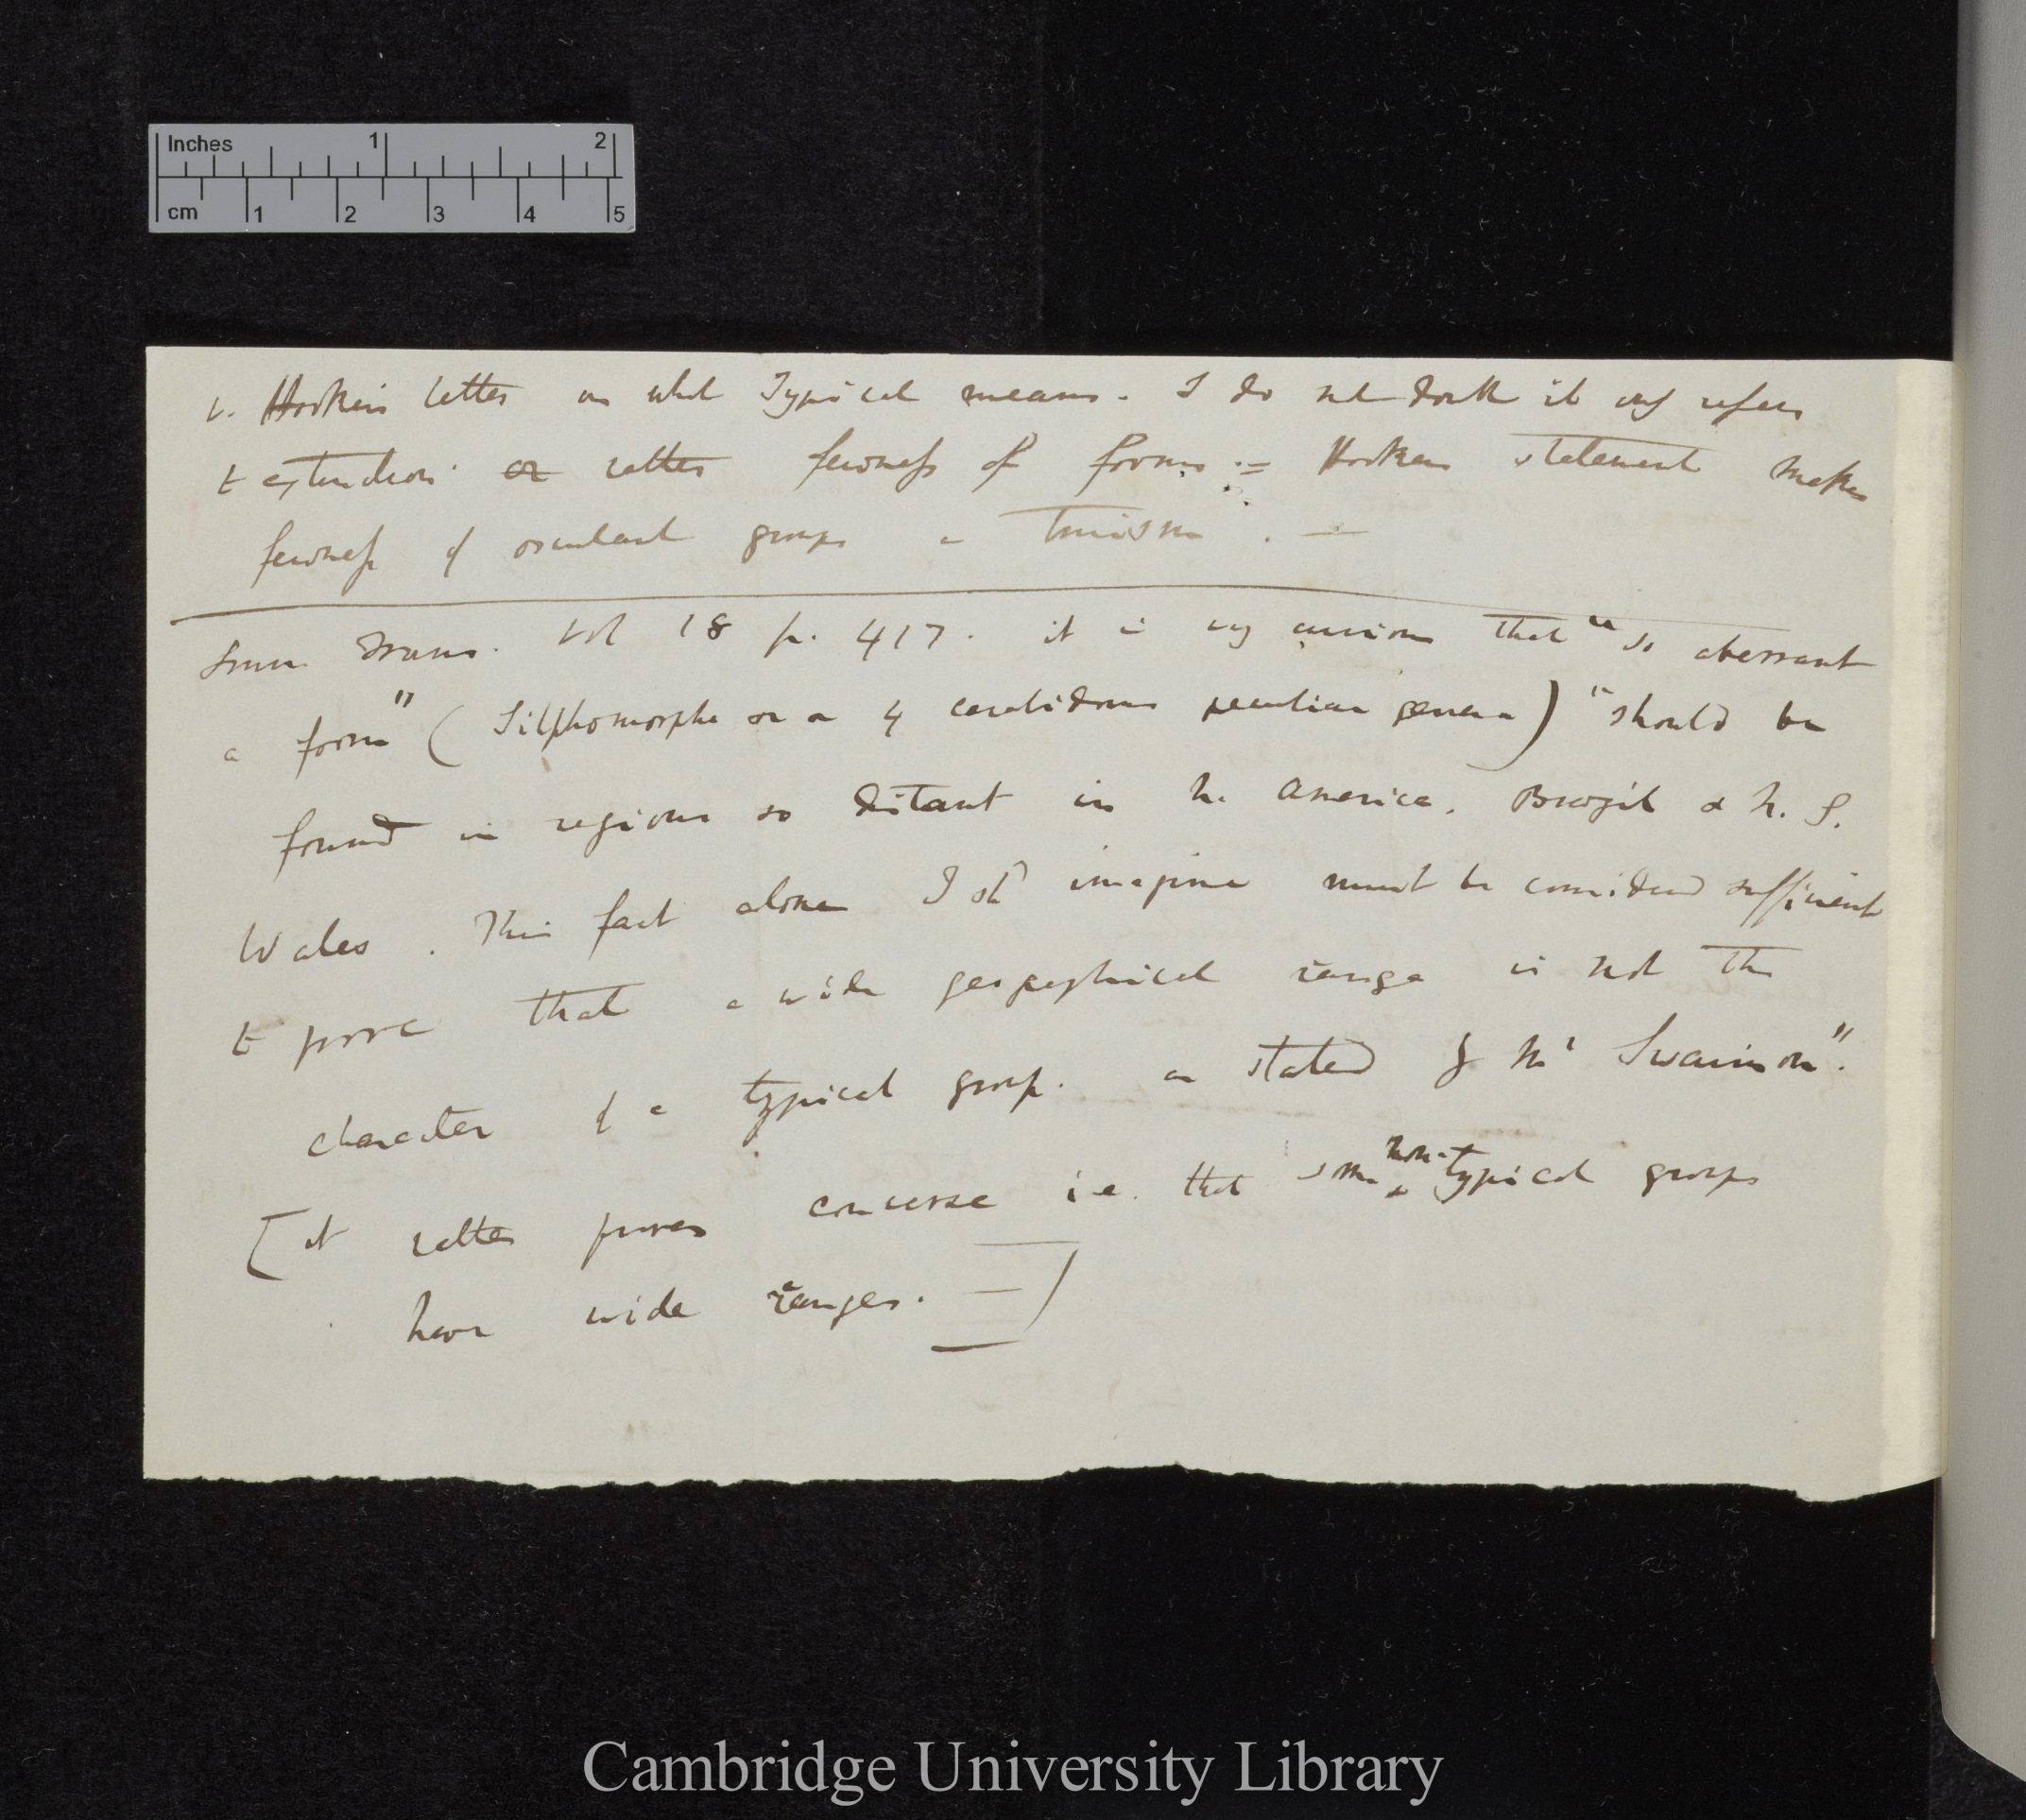 Inches 1 2
cm 1 2 3 4 5
v. Hookers letter on what Typical means. I do not doubt it only refers
to extinction or rather fewness of forms := Hookers statement makes
fewness of osculant groups a truism . —
Linn. Trans. Vol 18 p. 417. it is very curious that "so aberrant
a form" (Silphomorpha or a g carabidous peculiar genera) "should be
found in regions so distant in N. America, Brazil & N. S.
Wales. This fact alone I shd imagine must be considered sufficient
to prove that a wide geographical range is not the
character of a typical group. as stated by Mr Swainson".
[it rather proves converse i.e. that some non-typical groups
have wide ranges. —]
Cambridge University Library